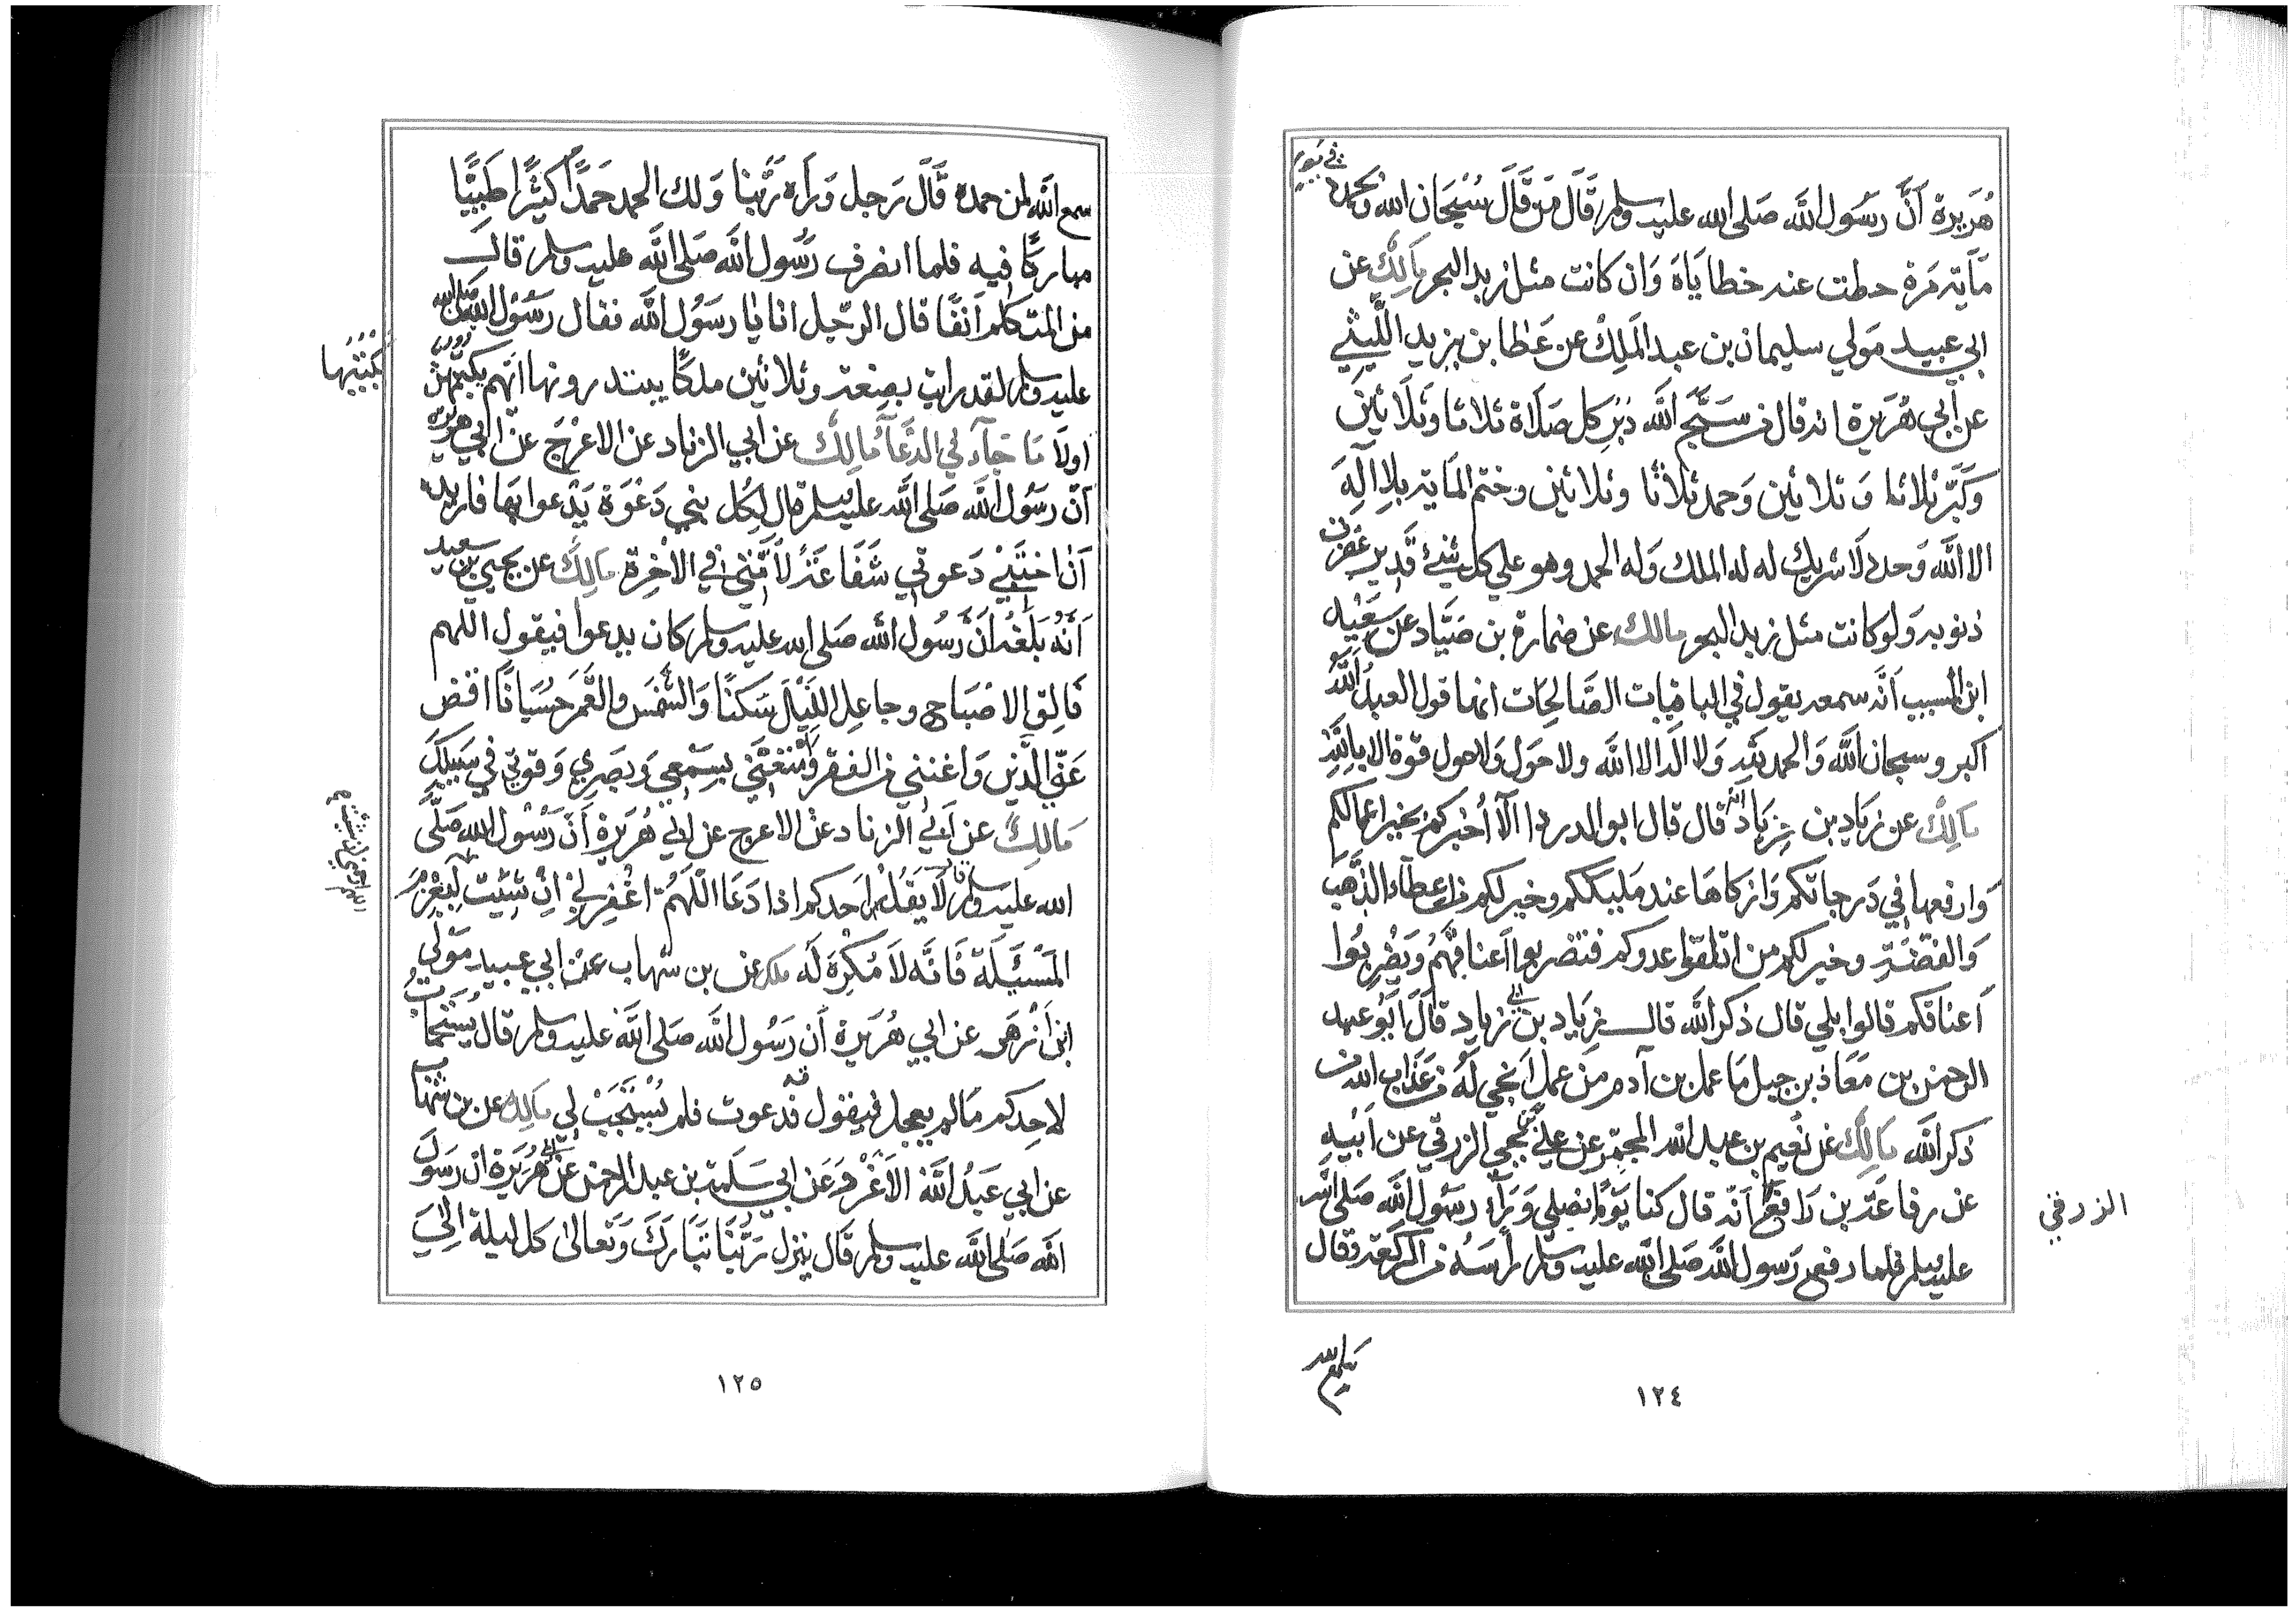 في يوم
هُرَيرة أنَّ رسُول الله صَلى الله عليه وسلم قَالَ مَن قَالَ سُبْحَان الله وبحمده
مَاية مَرة حطت عنه خطايَاه وَان كانت مثل زبد البحر مَالِك عن
ابي عبيد مَولي سليمان بن عبد المَلِك عن عَطا بن يزيد اللَّيْثي
عن أبي هُرَيرة انه قال من سَبَّح الله دُبُر كل صَلَاة ثلاثا وثَلَاثينَ
وَكَبَّر ثلاثا وَثلاثين وَحمد ثلاثًا وثلاثين وختم المَاية بلا اله
الا الله وَحده لَا شريك له له الملك وَله الحمد وهو علي كل شيئ قَدير غفرت
ذنوبه وَلو كانت مثل زبد البحر مالك عن عمارة بن صَيَّاد عن سَعِيْد
ابن المسيب انَّه سمعه يقول في الباقيات الصَّالِحَات انها قول العبد اللهُ
اكبر وسبحان الله وَالحمد لله وَلا اله الا الله ولا حَول وَلا قوة الا بالله
مَالِك عن زيَاد بن ابي زيَاد انه قال قال ابو الدردا الَا أُخبركم بخير اعمالكم
وَارفعها في دَرجاتكم وَازكاهَا عند مَليككم وخير لكم من اعطاء الذَّهب
وَالفضة وخير لكم من ان تلقوا عدوكم فتضربوا اعناقهُم وَيَضْرِبُوا
اَعناقكم قالوا بلي قال ذكر الله قال زيَاد بن ابي زيَاد قَالَ ابُو عبد
الرحمن بن مَعَاذ بن جبل مَا عمل بن آدم من عمل انجي لهُ من عَذَاب الله من
ذكر الله مَالِك عن نعَيم بن عبد الله المجمر عن علي بن يحيي الزرقي عن أبيه
عن رفاعَة بن رَافع انَّه قال كنا يَومًا نصلي وَرَاء رسُول الله صَلى الله
الزرقي
عليه وسلم فلما رفع رَسول الله صَلى الله عليه وسلم رأسَهُ من الركعة وقال
سمع الله
١٢٤
سمع الله لمن حمده قَالَ رَجل وَرَأه رَبَّنا وَلك الحمد حَمدًا كثيرًا طَيِّبًا
مباركًا فيه فلما انصرف رسُول الله صَلى الله عليه وسلم قال
من المتكلم آنفًا قال الرّجل انا يَا رسُول الله فقال رسُول الله صلى الله
عليه وسلم لقد رايت بضعة وثلاثين ملكًا يبتدرونها ايهم يكتبهن
يَكْتُبُهَا
اولَا مَا جَآء في الدُّعَآءُ مَالِك عن ابي الزناد عن الاعْرَج عن ابي هريرة
أنّ رَسُول الله صَلى الله عليه وسلم قال لكُل نبي دَعْوَة يَدْعوا بهَا فاريد
اَن اختبئ دَعوتي شَفَاعَةً لأُمَّتي في الاَخِرة مَالِك عن يحيي بن سعيد
اَنَّهُ بَلَغَهُ انَّ رسُول الله صَلى الله عليه وسلم كان يدعوا فيقول اللهم
فَالِق الاصْبَاح وجاعِل اللَّيْل سَكَنًا وَالشَّمْس والقَمَر حُسْبَانًا اقض
عَنّي الدَّيْن وَاغنني من الفقر وَامْتِعْنِي بِسَمْعي وَبَصَري وَقوتي في سَبِيلِك
مَالِك عن أبي الزناد عَن الاعرج عن ابي هُرَيرة أَنّ رَسُول الله صَلَّى
الله عليه وسلم قال لَا يَقُل احَدكم اذا دَعَا اللهُمّ اغْفِر لي انْ شِئت لِيَعْزِمُ
اللهم ارحمني ان شئت
المَسْئَلَة فَانَّه لاَ مُكرِهَ لَه ملك عن بن شهاب عَن ابي عبيد مَوْلى
ابن أزهَر عن ابي هُرَيرة أن رسُول الله صَلى الله عليه وسلم قال يُسْتَجَابُ
لاحدكم مَا لم يعجل فيقول قد دعوت فلم يُسْتَجَبْ لي مَالِك عن بن شهاب
عن ابي عَبْد الله الاَغَرّ وَعَن ابي سَلَمة بن عبد الرحمن عن ابي هُرَيرة ان رَسُول
الله صَلى الله عليه وسلم قَال ينزل رَبُّنَا تبَارَكَ وَتَعالى كل ليلة الي
١٢٥